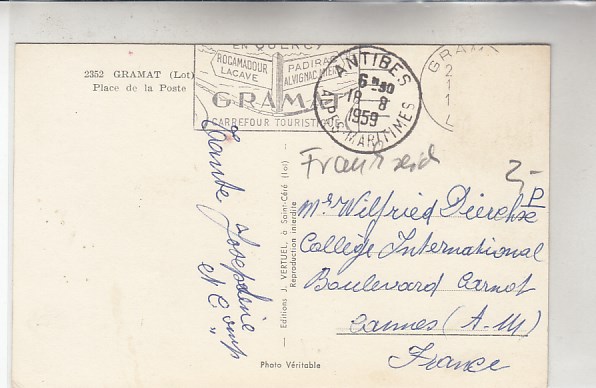 2352 GRAMAT (Lot)
Place de la Poste
EN QUERCY
ROCAMADOUR
LACAVE
PADIRAC
ALVIGNAC MIERS
GRAMAT
CARREFOUR TOURISTIQUE
ANTIBES
18 - 8
1959
ALPES-MARITIMES
GRAMA
2
1
1
L
Tante Josephine
et Comp
2,-
Mr Wilfried
Collège International
Boulevard Carnot
Cannes (A-M)
France
Editions J. VERTUEL, à Saint-Céré (Lot)
Reproduction interdite
Photo Véritable